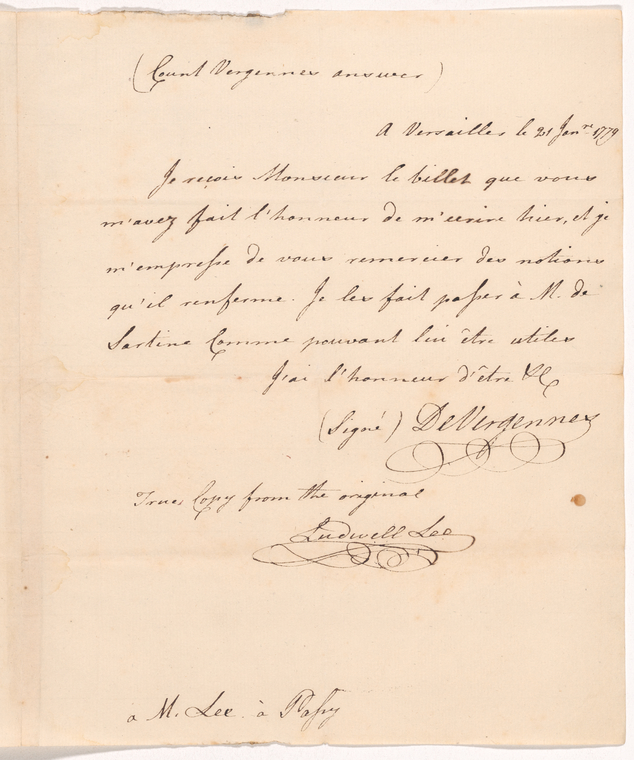 (Count Vergennes answer)
A Versailles le 21 Janr. 1779
Je reçois Monsieur le billet que vous
m'avez fait l'honneur de m'ecrire hier, et je
m'empresse de vous remercier des notions
qu'il renferme. Je les fait passer à M. de
Sartine Comme pouvant lui être utiles
J'ai l'honneur d'être &c
(Signé) De Vergennes
True Copy from the original
Ludwell Lee
à M. Lee à Passy